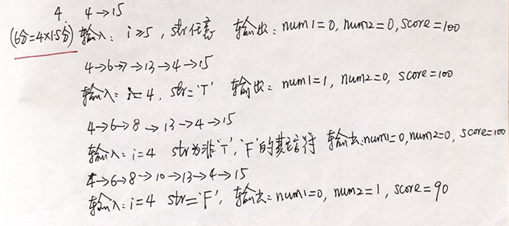 4 4→15
(6分=4×1.5分) 输入: i≥5, str任意 输出: num1=0, num2=0, score=100
4→6→7→13→4→15
输入: i=4, str='T' 输出: num1=1, num2=0, score=100
4→6→8→13→4→15
输入: i=4 str为非'T','F'的其它字符 输出:num1=0,num2=0, score=100
4→6→8→10→13→4→15
输入: i=4 str='F', 输出: num1=0, num2=1, score=90